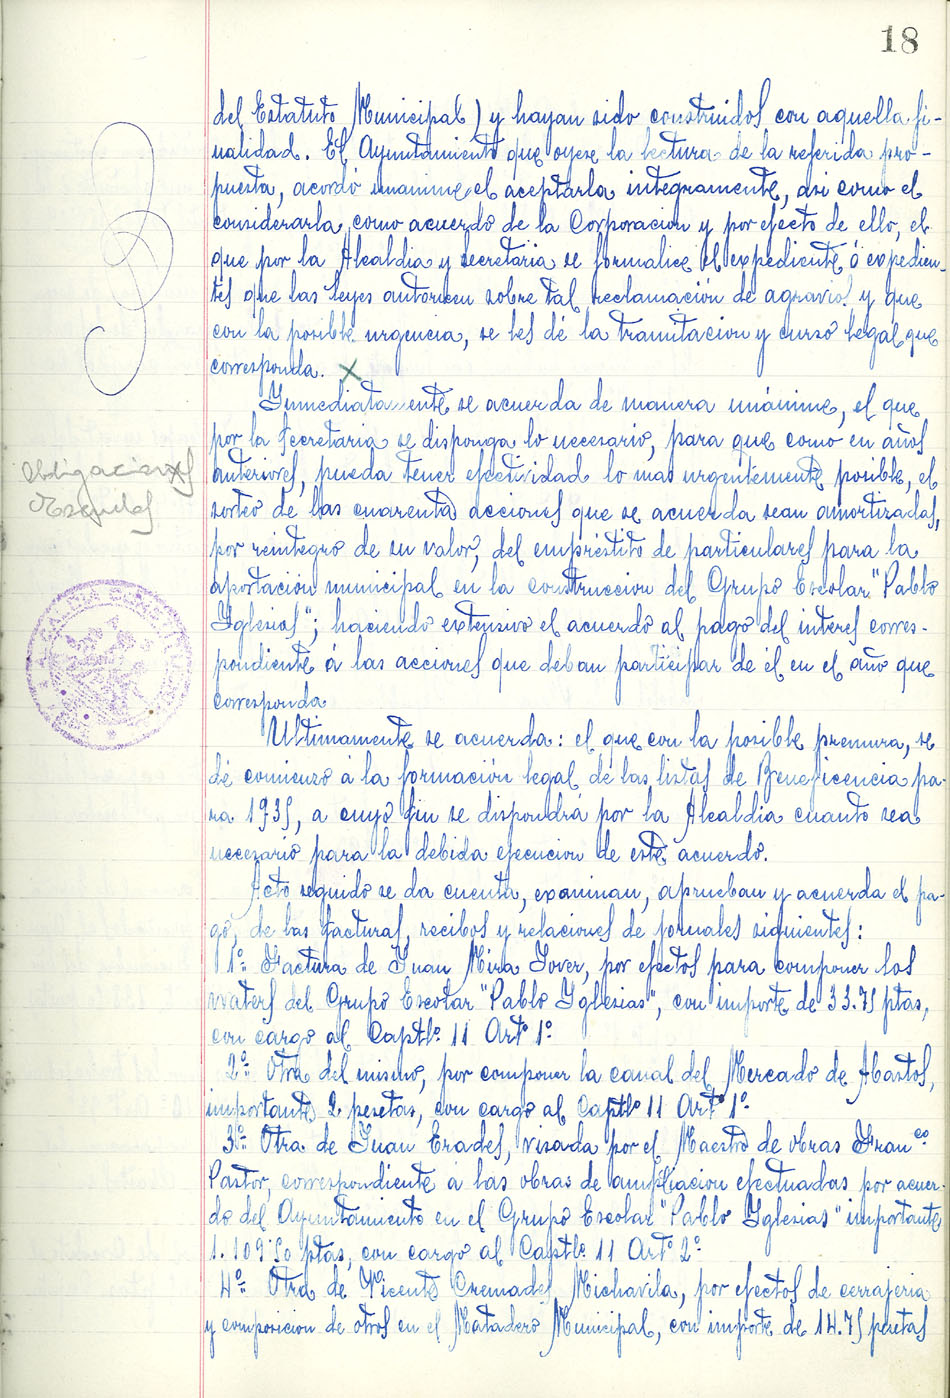 18
del Estatuto Municipal) y hayan sido construidos con aquella fi-
nalidad. El Ayuntamiento que oyese la lectura de la referida pro-
puesta, acordó unanime el aceptarla integramente, asi como el
considerarla como acuerdo de la Corporacion y por efecto de ello, el
que por la Alcaldia y secretaria se formalice el expediente ó expedien-
tes que las leyes autoricen sobre tal reclamación de agravios y que
con la posible urgencia, se les dé la tramitacion y curso legal que
corresponda. X
Inmediatamente se acuerda de manera unánime, el que
por la Secretaria se disponga lo necesario, para que como en años
anteriores, pueda tener efectividad lo mas urgentemente posible, el
sorteo de las cuarenta acciones que se acuerda sean amortizadas,
por reintegro de su valor, del empréstito de particulares para la
aportación municipal en la construccion del Grupo Escolar "Pablo
Iglesias"; haciendo extensivo el acuerdo al pago del interes corres-
pondiente á las acciones que deban participar de él en el año que
corresponda
Obligaciones
Escuelas
Ultimamente se acuerda: el que con la posible premura, se
dé comienzo á la formación legal de las listas de Beneficencia pa-
ra 1935, a cuyo fin se dispondrá por la Alcaldia cuanto sea
necesario para la debida ejecucion de este acuerdo.
Acto seguido se da cuenta, examinan, aprueban y acuerda el pa-
go, de las facturas, recibos y relaciones de jornales siguientes:
1º: Factura de Juan Mira Jover, por efectos para componer los
waters del Grupo Escolar "Pablo Iglesias", con importe de 33.75 ptas,
con cargo al Captlº 11 Artº 1º
2º: Otra del mismo, por componer la canal del Mercado de Abastos,
importante 2 pesetas, con cargo al Captlº 11 Artº 1º
3º: Otra de Juan Erades, visada por el Maestro de obras Franco
Pastor, correspondiente á las obras de ampliacion efectuadas por acuer-
do del Ayuntamiento en el Grupo Escolar "Pablo Iglesias" importante
1.109'50 ptas, con cargo al Captlº 11 Artº 2º
4º: Otra de Vicente Cremades Michavila, por efectos de cerrajeria
y composicion de otros en el Matadero Municipal, con importe de 14.75 pesetas